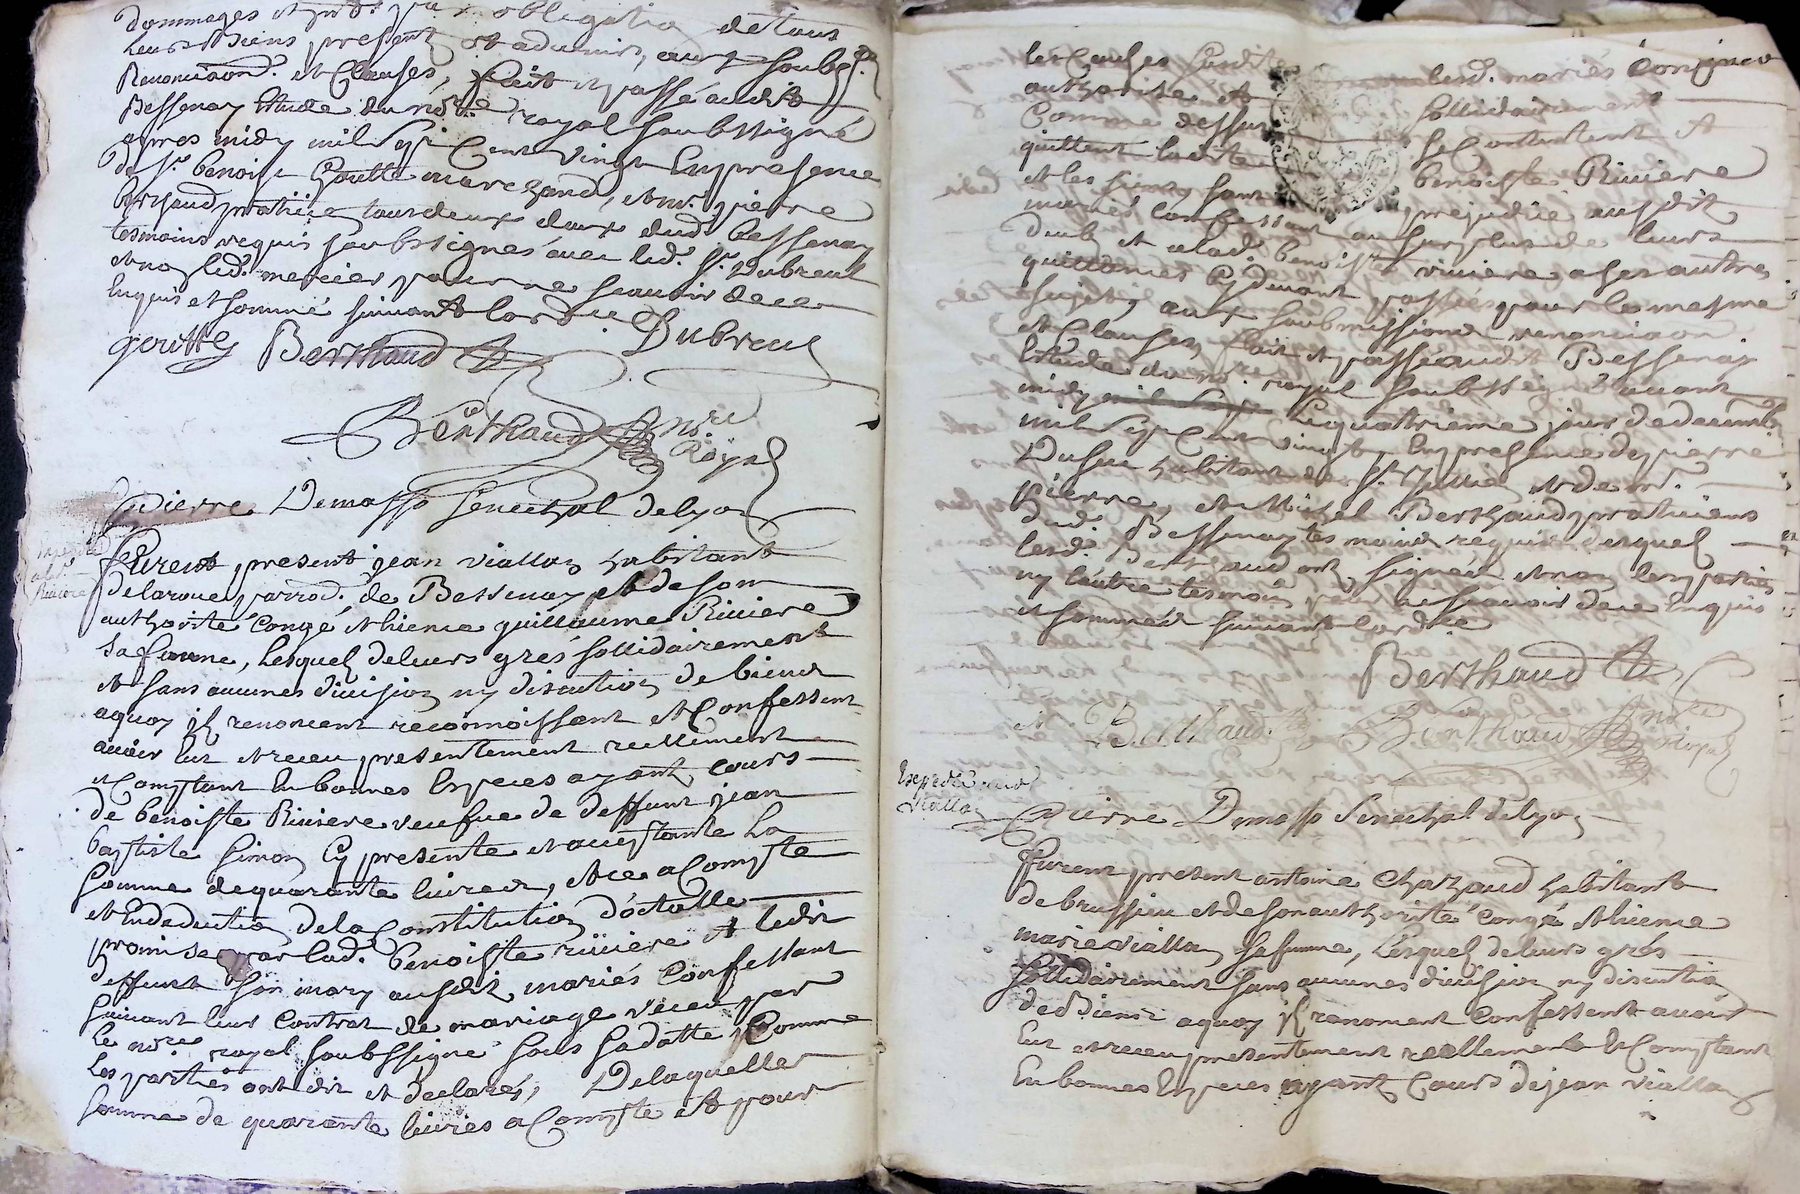 dommages obligation de tous
Leurs Biens present et aduenir, aux soubz.
Renonciaond. et Clauses, fait et passé audit
Bessenay Etude du nore royal soubssigné
apres midy mil sept Cent vingt En presence
de sr. benoist Goutte marchand, et mr. pierre
Berthaud praticien tous deux dud. bessenay
tesmoins requis soubssignés auec led. sr. Dubreul
et non led. mercier pour ne scauoir de ce
Enquis et sommé suiuant lordce
goutte Berthaud Dubreul
Berthaud nore
Royal
Pierre Demasso senechal de lyon
Expedié
a lad.
Riuiere
Furent present jean viallon habitant
de laroue parrod. de Bessenay et de son
authorité Congé et licence guillaume Riuiere
sa femme, Lesquels de leurs grés sollidairement
et sans aucunes diuision ny discution de biens
aquoy ils renoncent reconnoissent et Confessent
auoir Eut et receu presentement reellement
et Comptant En bonnes Especes ayant cours
de benoiste Riuiere veufue de deffunt jean
baptiste simon Cy presente et acceptante La
somme de quarante liures, et ce a Compte
et En deduction de la Constitution dotalle
promise par lad. benoiste riuiere et ledit
deffunt son mary ausdits mariés Confessant
suiuant leur Contrat de mariage receu par
le nore royal soubssigné sous sa datte Comme
les parties ont dit et declaré, De laquelle
somme de quarante liures a Compte et pour
les Causes susdites lesd. mariés Conjoints
authorisée et sollidairement
Comme dessus se Contentent et
quittent ladite benoiste Riuiere
et les siens sans prejudice ausdits
mariés Confessant au surplus de leurs
deub et alad. benoiste riuiere a ses autres
quittances Cy deuant passées pour le mesme
sujet, aux soubmissions renonciaon
et Clauses, fait et passé audit Bessenay
Estude du no. royal soubssigné auant
midy Le quatrieme jour de decembre
mil sept Cent vingt, En presence de pierre
Dusuc habitant de st. Jullien et de mr.
pierre, et Michel Berthaud praticiens
dud. Bessenay tesmoins requis desquels
lesd. Berthaud ont signés et non les parties
ny lautre tesmoin pour ne scauoir de ce Enquis
et sommés suiuant lordce
Berthaud
Berthaud Berthaud nore
Royal
Expedié
viallon
Pierre Demasso Senechal de lyon
Furent present antoine Chazaud habitant
de brussieu et de son authorité Congé et licence
marie viallon sa femme, Lesquels de leurs grés
sollidairement sans aucunes diuision ny discution
de Biens aquoy ils renoncent Confessent auoir
Eut et receu presentement reellement et Comptant
En bonnes Especes ayant Cours de jean viallon